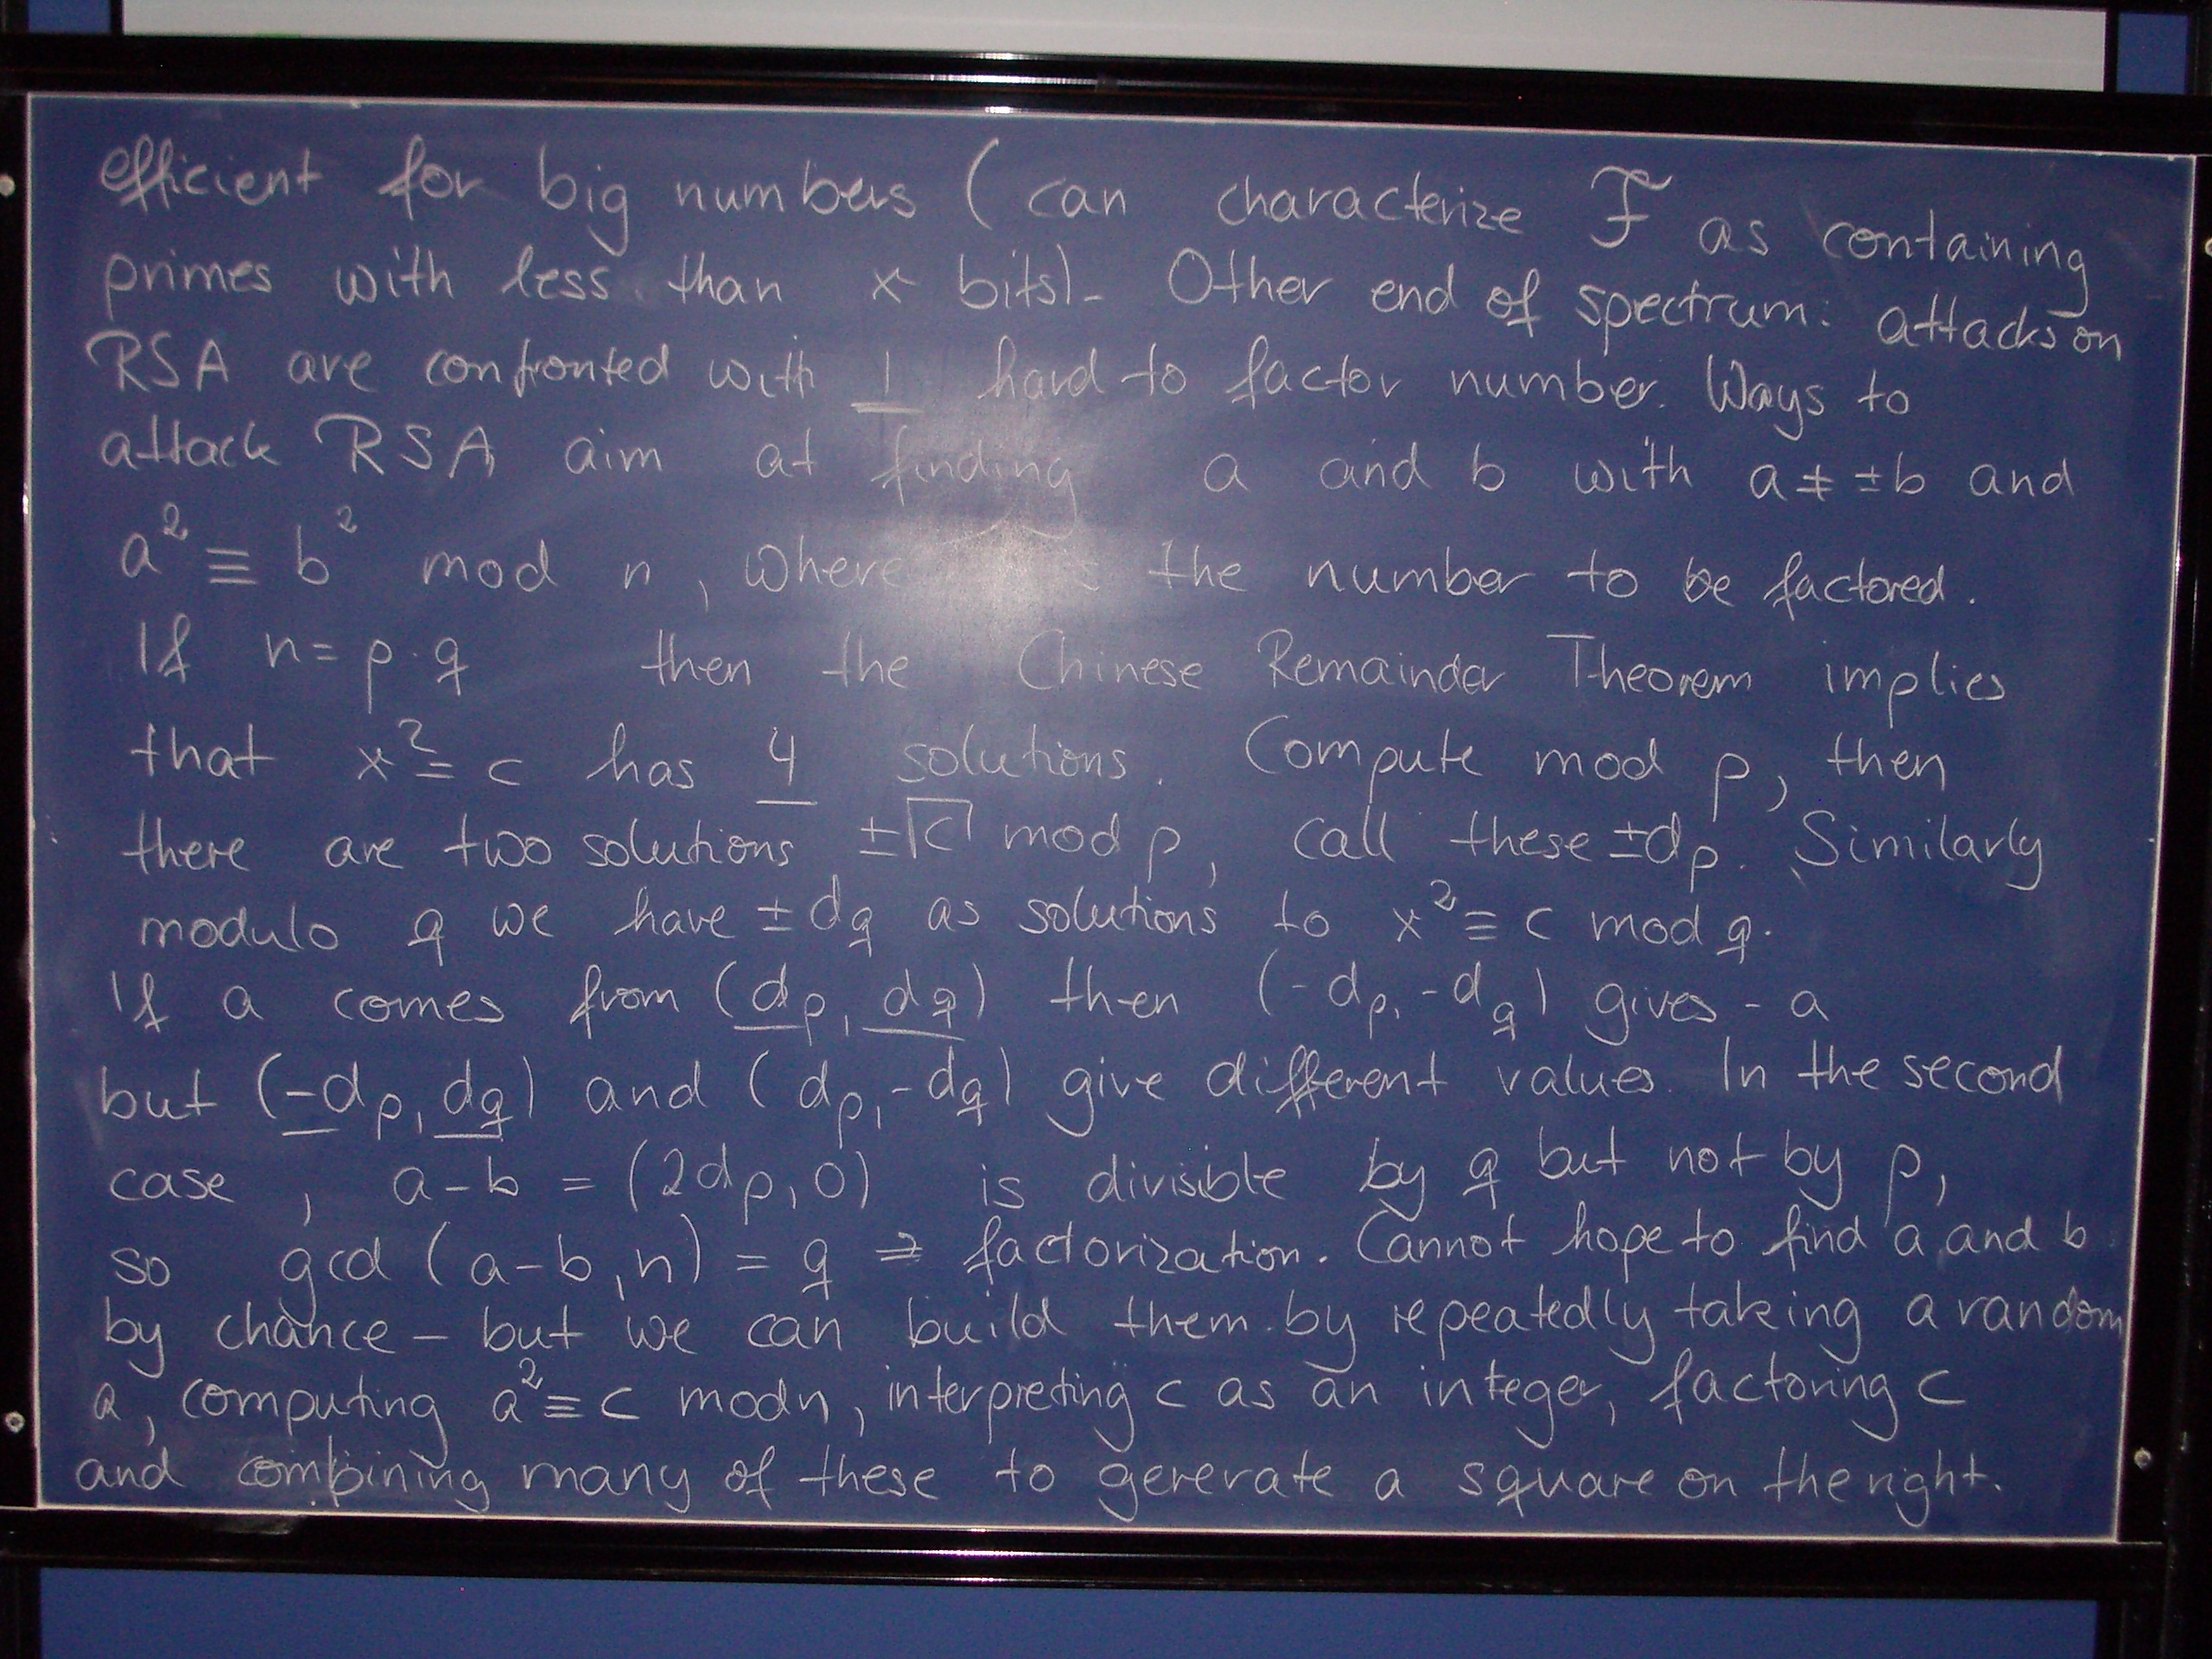 efficient for big numbers (can characterize F as containing
primes with less than x bits). Other end of spectrum: attacks on
RSA are confronted with 1 hard to factor number. Ways to
attack RSA aim at finding a and b with a ≠ ±b and
a² ≡ b² mod n, where the number to be factored.
If n = p·q then the Chinese Remainder Theorem implies
that x² = c has 4 solutions. Compute mod p, then
there are two solutions ±√c mod p, call these ±dp. Similarly
modulo q we have ±dq as solutions to x² ≡ c mod q.
If a comes from (dp, dq) then (-dp, -dq) gives -a
but (-dp, dq) and (dp, -dq) give different values. In the second
case, a-b = (2dp, 0) is divisible by q but not by p,
so gcd (a-b, n) = q ⇒ factorization. Cannot hope to find a and b
by chance – but we can build them by repeatedly taking a random
a, computing a² ≡ c mod n, interpreting c as an integer, factoring c
and combining many of these to gererate a square on the right.